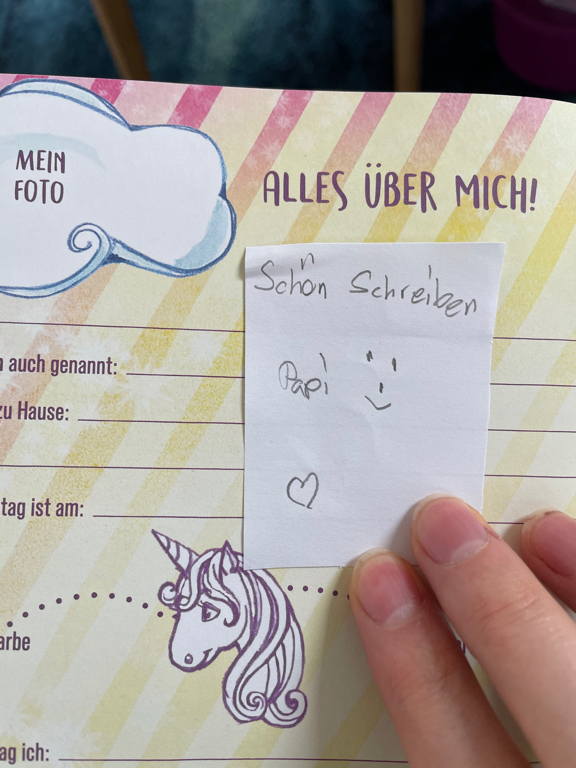 MEIN
FOTO
ALLES ÜBER MICH!
Schön Schreiben
Papi
auch genannt:
zu Hause:
tag ist am:
arbe
ag ich: